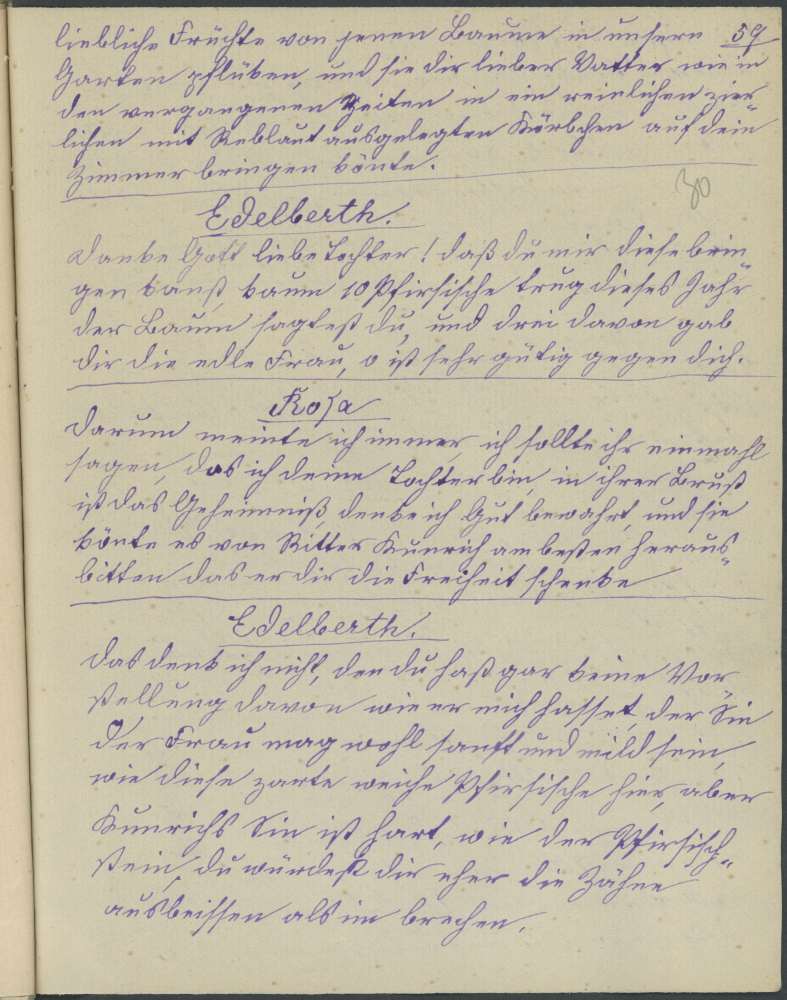 liebliche Früchte von jenen Baume in unsern 59
Garten pflüken, und sie dir lieber Vatter wie in
den vergangenen Zeiten in ein reinlichen zier
lichen mit Reblaub ausgelegten Körbchen auf dein
Zimmer bringen könte.
30
Edelberth.
Danke Gott liebe Tochter! daß du mir diese brin
gen kanst, kaum 10 Pfirsische trug dieses Jahr
der Baum sagtest du, und drei davon gab
dir die edle Frau, o ist sehr gütig gegen dich.
Rosa
Darum meinte ich immer ich sollte ihr einmahl
sagen, das ich deine Tochter bin, in ihrer Brust
ist das Geheimniß, denke ich Gut bewahrt, und sie
könte es von Ritter Kunrich am besten heraus"
bitten das er dir die Freiheit schenke
Edelberth.
Das denk ich nicht, den du hast gar keine Vor
stellung davon wie er mich hasset, der Sin
der Frau mag wohl sanft und mild sein,
wie diese zarte weiche Pfirsische hier, aber
Kunrichs Sin ist hart, wie der Pfirsisch"
stein, du würdest dir eher die Zähne
ausbeissen als im brechen.